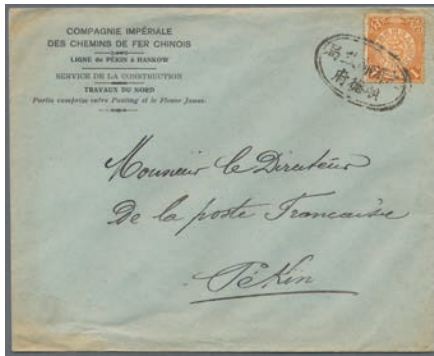 COMPAGNIE IMPÉRIALE
DES CHEMINS DE FER CHINOIS
LIGNE de PÉKIN à HANKOW
SERVICE DE LA CONSTRUCTION
TRAVAUX DU NORD
Partie comprise entre Paoting et le Fleuve Jaune.
Monsieur le Directeur
De la poste Francaise
Pékin